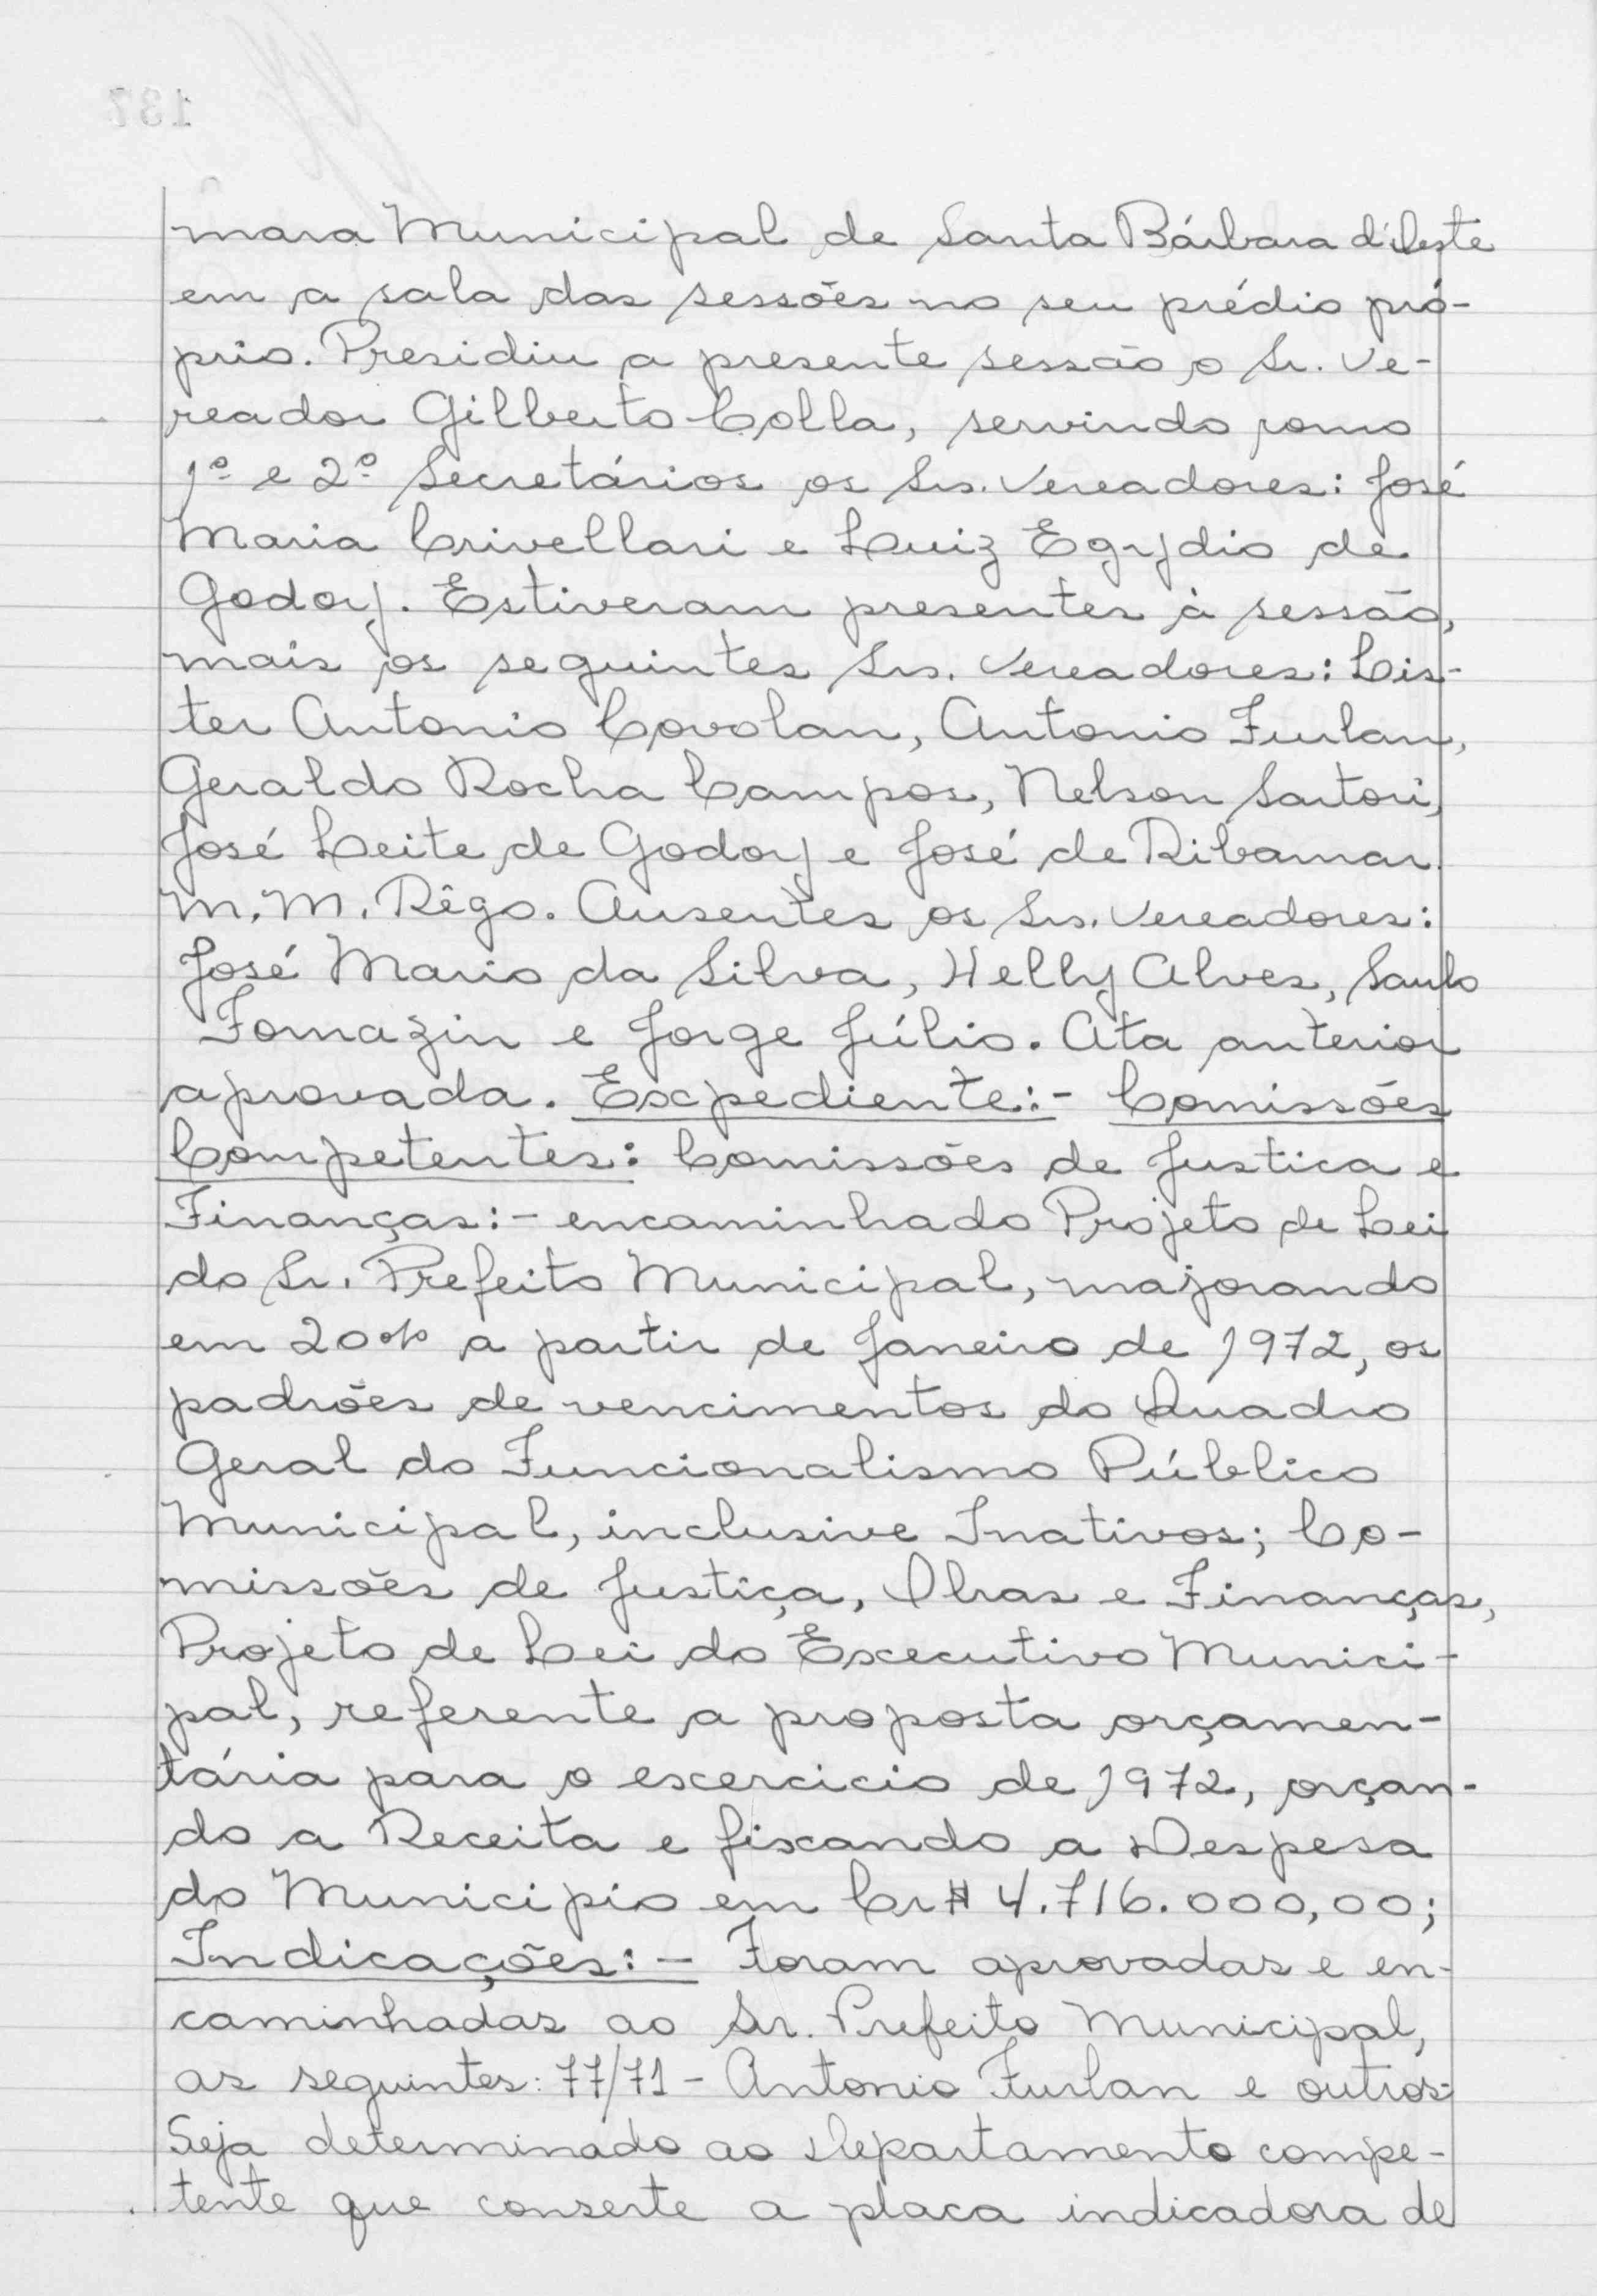 mara Municipal de Santa Bárbara d'Oeste
em a sala das sessões no seu prédio pró-
prio. Presidiu a presente sessão o Sr. Ve-
reador Gilberto Colla, servindo como
1º e 2º Secretários os Srs. Vereadores: José
Maria Crivellari e Luiz Egydio de
Godoy. Estiveram presentes à sessão,
mais os seguintes Srs. Vereadores: Lis-
ter Antonio Covolan, Antonio Furlan,
Geraldo Rocha Campos, Nelson Sartori,
José Leite de Godoy e José de Ribamar
M. M. Rêgo. Ausentes os Srs. Vereadores:
José Mario da Silva, Helly Alves, Saulo
Fornazin e Jorge Júlio. Ata anterior
aprovada. Expediente:- Comissões
Competentes: Comissões de Justica e
Finanças:- encaminhado Projeto de Lei
do Sr. Prefeito Municipal, majorando
em 20% a partir de Janeiro de 1972, os
padrões de vencimentos do Quadro
Geral do Funcionalismo Público
Municipal, inclusive Inativos; Co-
missões de Justiça, Obras e Finanças,
Projeto de Lei do Executivo Munici-
pal, referente a proposta orçamen-
tária para o exercicio de 1972, orçan-
do a Receita e fixando a Despesa
do Municipio em Cr$ 4.716.000,00;
Indicações:- Foram aprovadas e en-
caminhadas ao Sr. Prefeito Municipal,
as seguintes: 77/71 - Antonio Furlan e outros:
Seja determinado ao Departamento compe-
tente que conserte a placa indicadora de